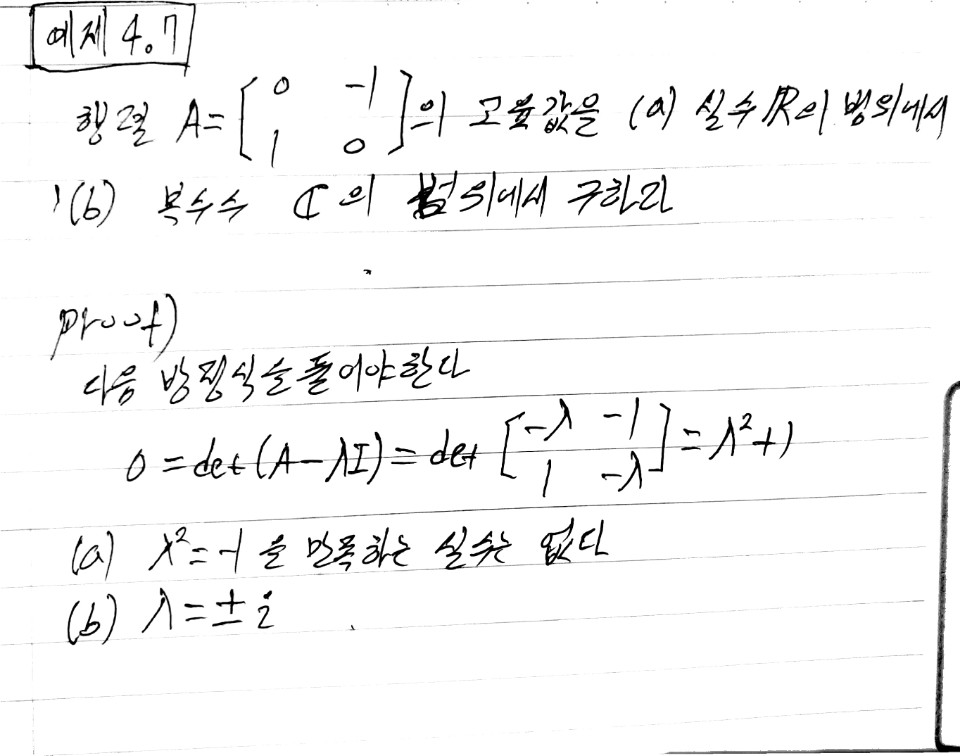 예제 4.7
행렬 A = [ 0 -1 ; 1 0 ]의 고윳값을 (a) 실수 ℝ의 범위에서
, (b) 복소수 ℂ의 범위에서 구하라
proof)
다음 방정식을 풀어야한다
0 = det(A-λI) = det [ -λ -1 ; 1 -λ ] = λ²+1
(a) λ²=-1 을 만족하는 실수는 없다
(b) λ = ± i